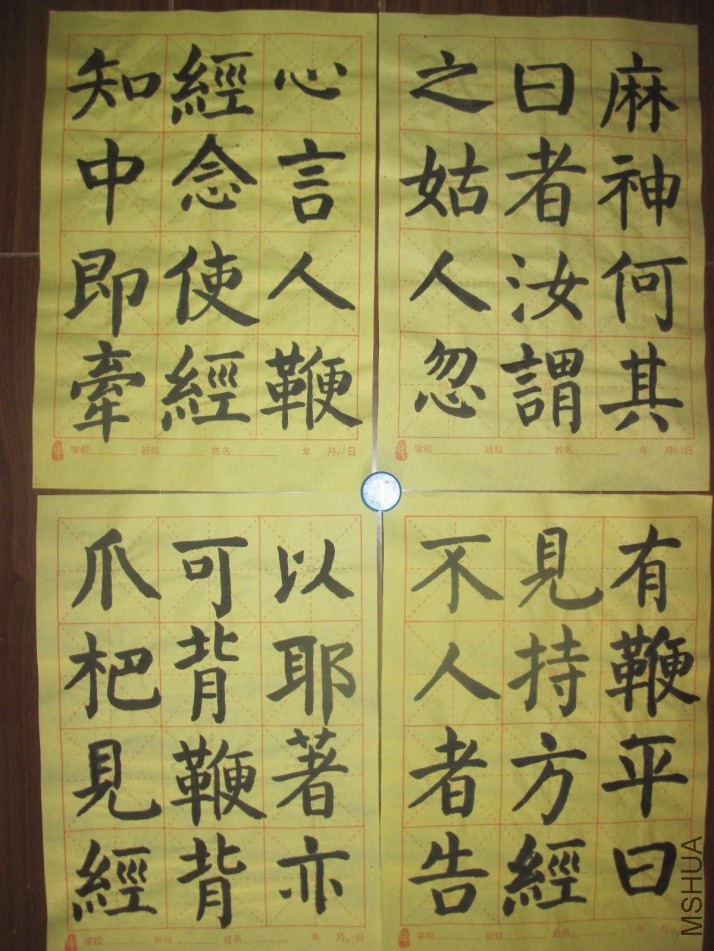 知經心
中念言
即使人
牽經鞭
学校 班级 姓名 年 月 日
之曰麻
姑者神
人汝何
忽謂其
学校 班级 姓名 年 月 日
爪可以
杷背耶
見鞭著
經背亦
学校 班级 姓名 年 月 日
不見有
人持鞭
者方平
告經曰
学校 班级 姓名 年
MSHUA